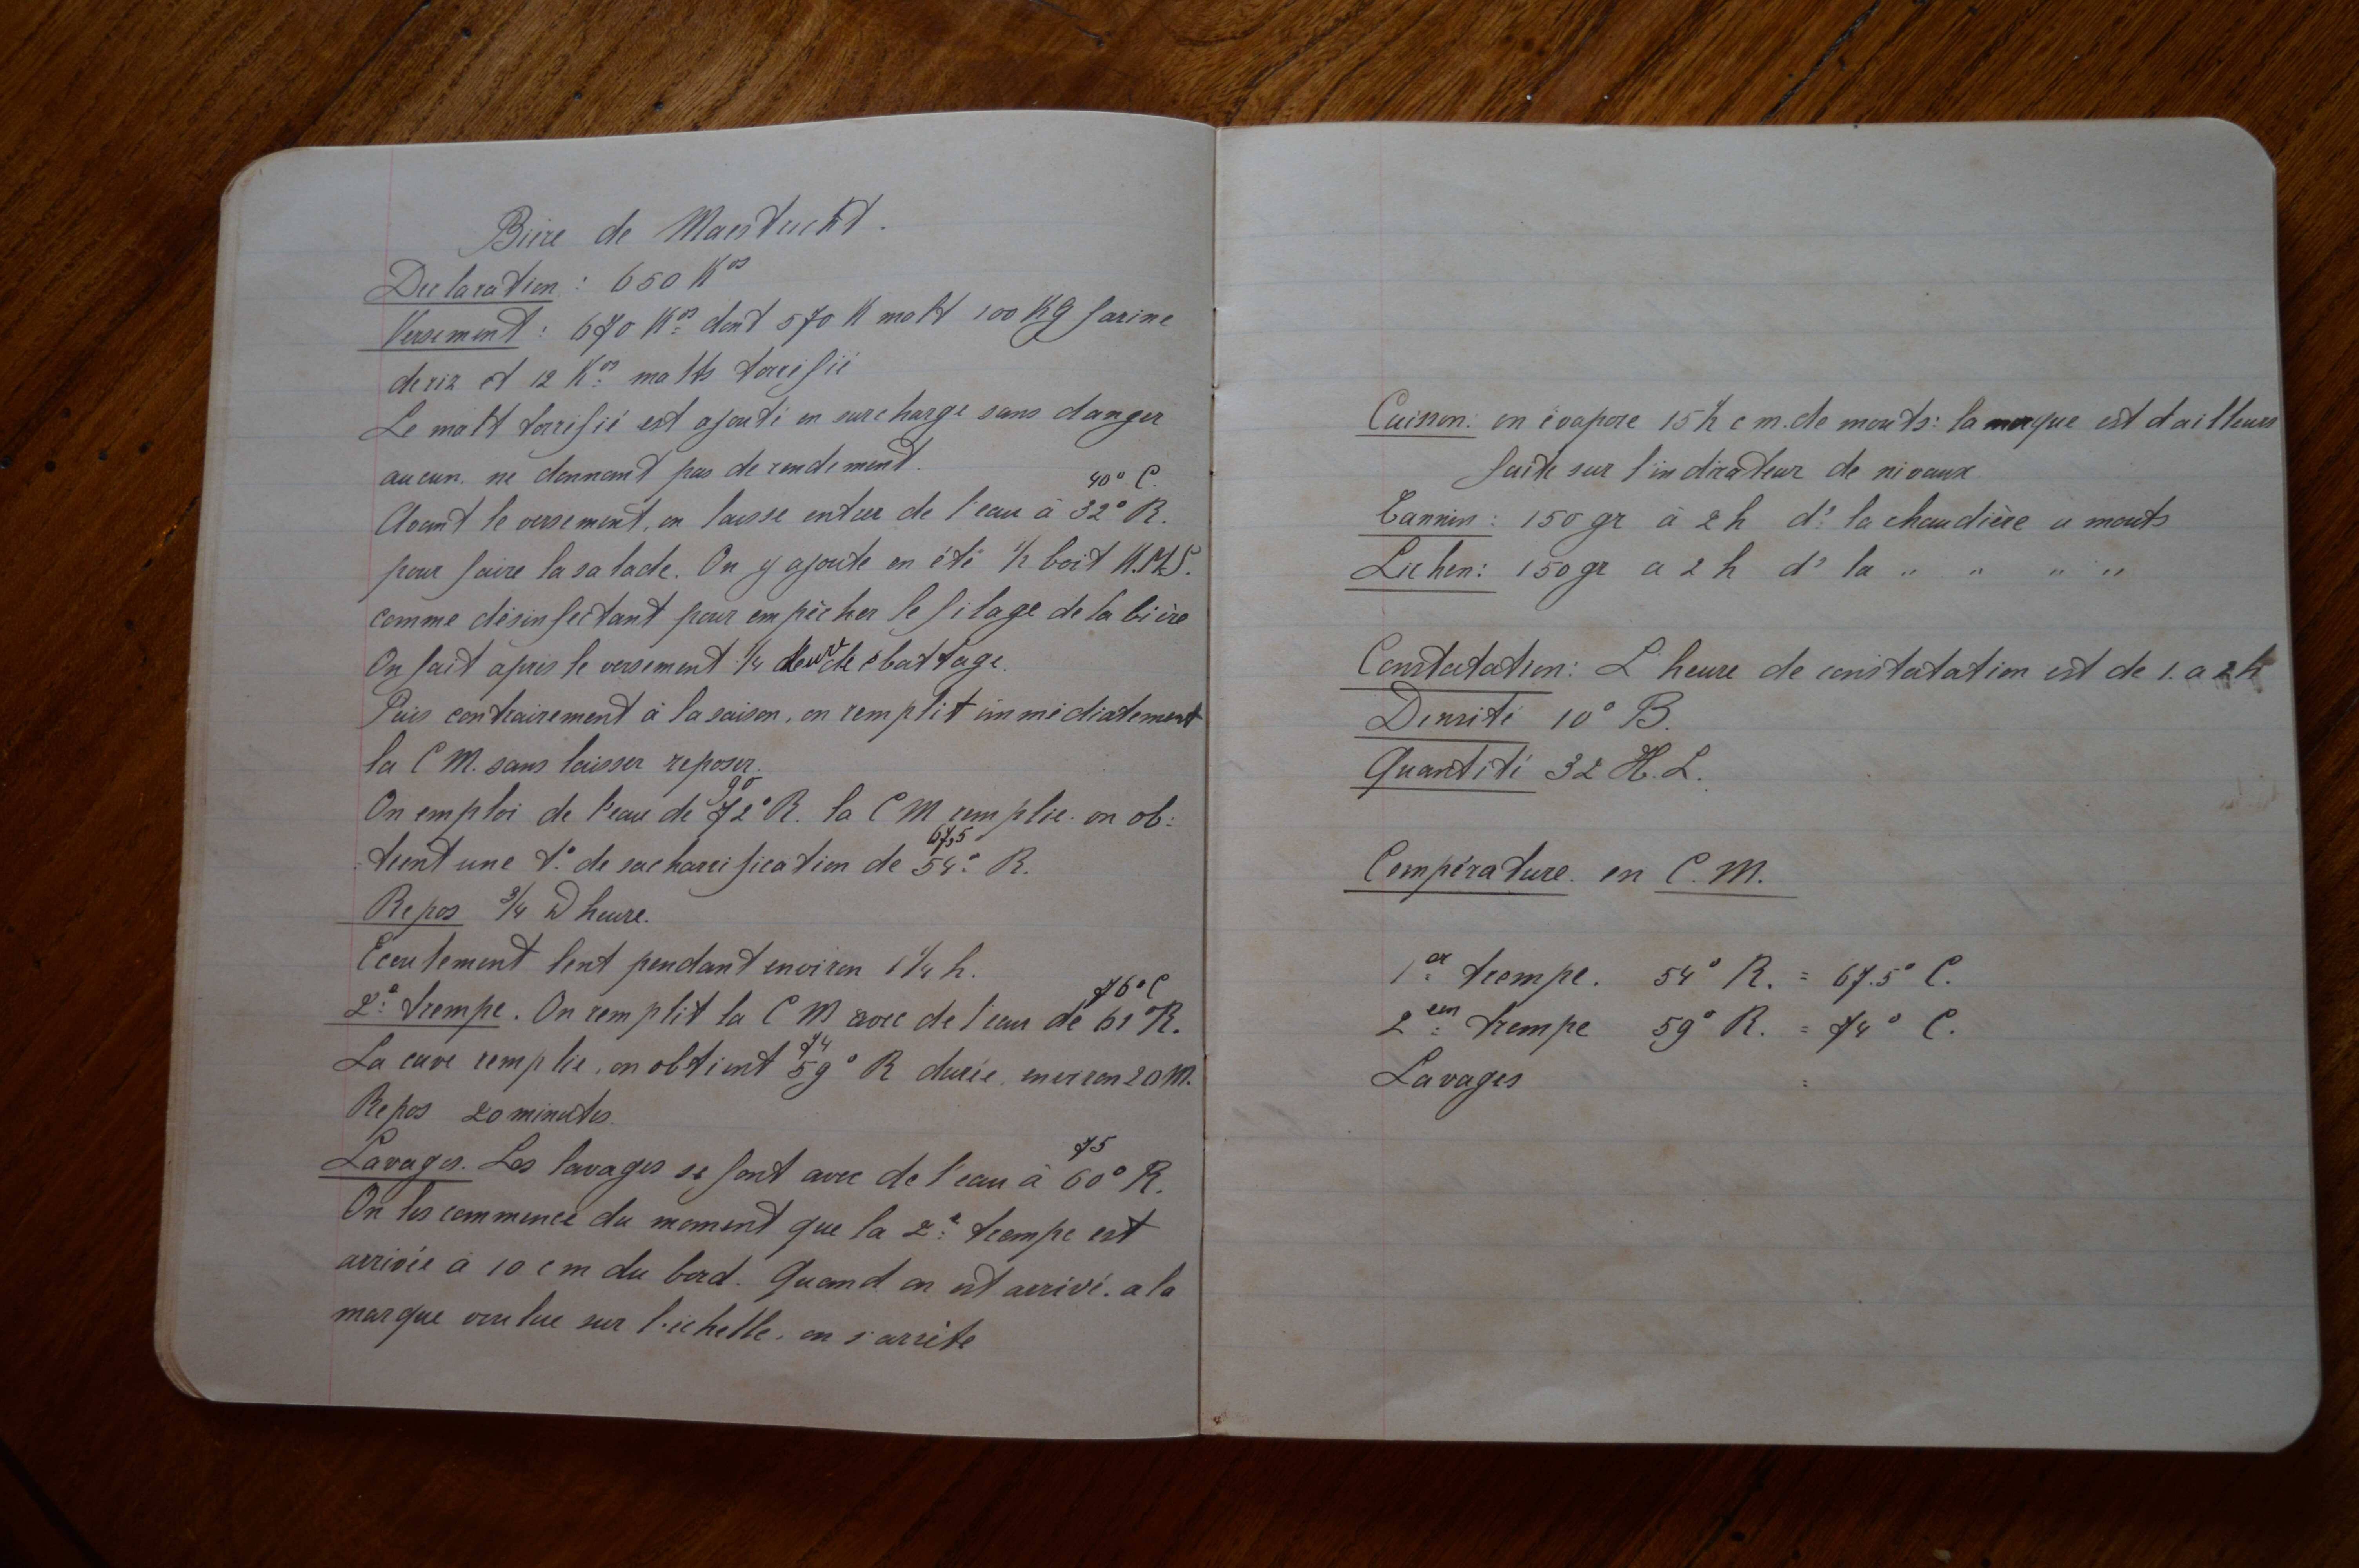 Bière de Maestricht.
Declaration : 650 Kos
Versement : 670 Kos dont 570 K malt 100 Kg farine
de riz et 12 Kos malts torrefié
Le malt torrefié est ajouté en surcharge sans danger
aucun. ne donnant pas de rendement.
40° C.
Avant le versement, on laisse entrer de l'eau à 32° R.
pour faire la salade. On y ajoute en été 1/2 boit K.M.S.
comme désinfectant pour empêcher le filage de la bière
On fait après le versement 1/4 ébattage.
Puis contrairement à la saison, on remplit immédiatement
la C M. sans laisser reposer.
90
On emploi de l'eau de 72° R. la C M remplie. on ob:
67,5
:tient une t° de sacharrification de 54° R.
Repos 3/4 D heure.
Ecoulement lent pendant environ 1 1/4 h.
76° C
2e trempe. On remplit la C M avec de l'eau de 61° R.
74
La cuve remplie, on obtient 59° R durée, environ 20 M.
Repos 20 minutes.
75
Lavages. Les lavages se font avec de l'eau à 60° R.
On les commence du moment que la 2e trempe est
arrivée à 10 cm du bord. Quand on est arrivé. a la
marque voulue sur l'échelle, on s'arrête
Cuisson: on évapore 15 h c m. de mouts: la marque est d'ailleurs
faite sur l'indicateur de niveaux
Tannin : 150 gr à 2 h ds la chaudière a mouts
Lichen: 150 gr a 2 h ds la " " " "
Constatation: L'heure de constatation est de 1. a 2 h
Densité 10° B.
Quantité 32 H. L.
Température. en C. M.
1er trempe. 54° R. = 67.5° C.
2em trempe 59° R. = 74° C.
Lavages :